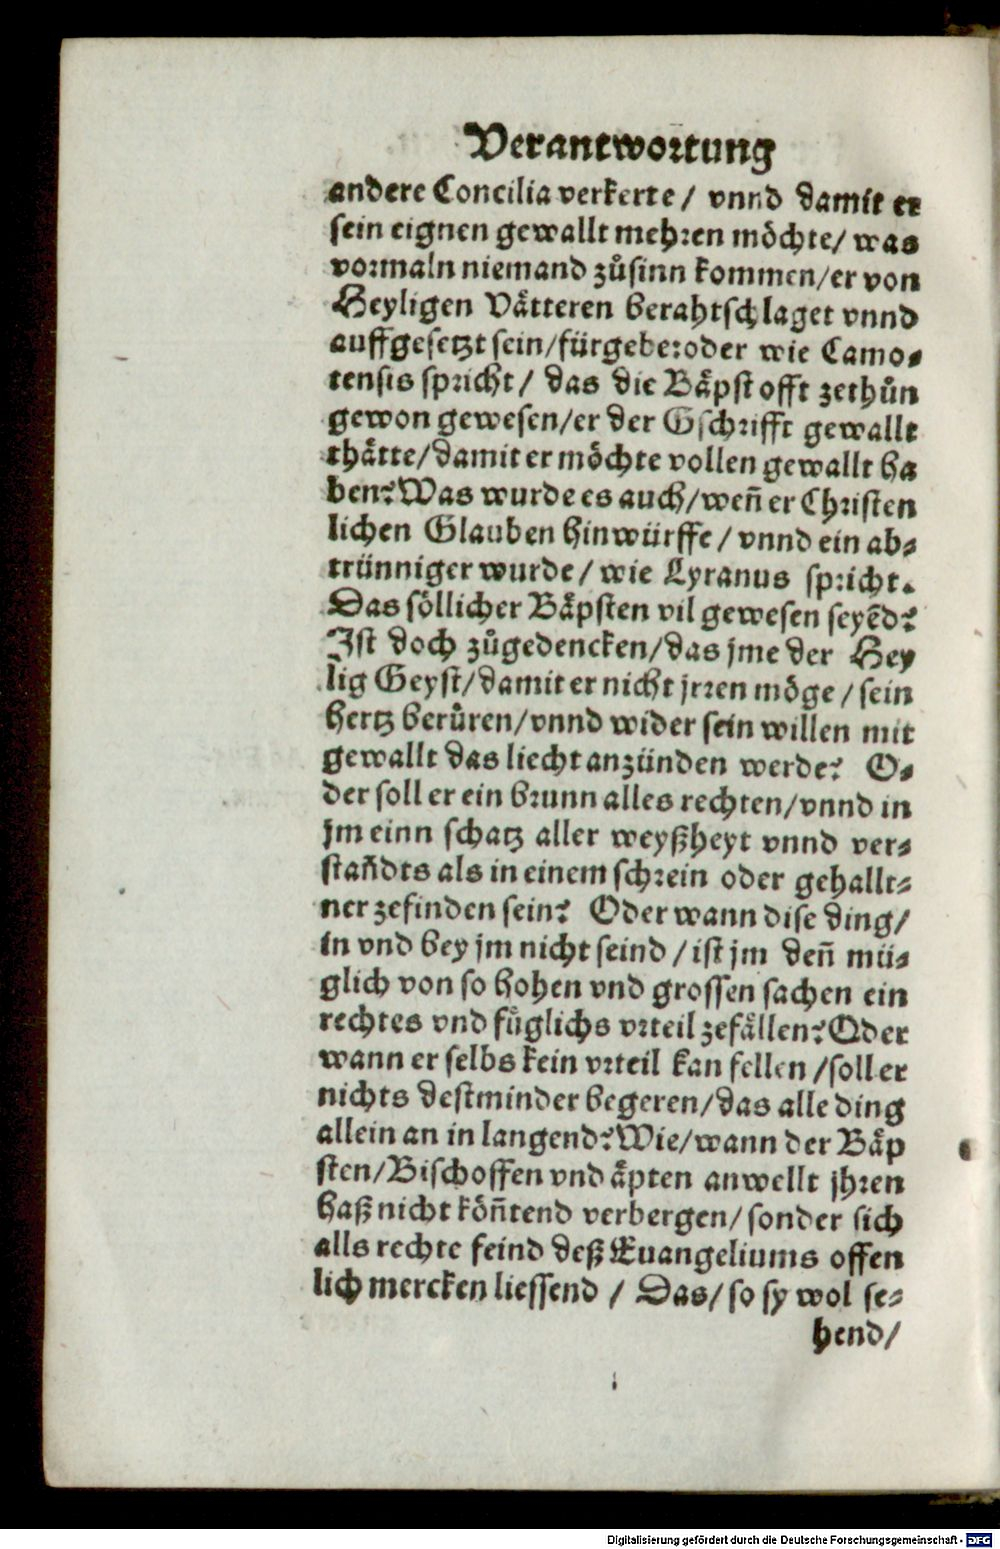 Verantwortung
andere Concilia verkerte / vnnd damit er
sein eignen gewallt mehren möchte / was
vormaln niemand zůsinn kommen / er von
Heyligen Vaͤtteren berahtschlaget vnnd
auffgesetzt sein / fürgebe: oder wie Camo⸗
tensis spricht / das die Baͤpst offt zethůn
gewon gewesen / er der Gschrifft gewallt
thaͤtte / damit er möchte vollen gewallt ha
ben? Was wurde es auch / weñ er Christen
lichen Glauben hinwürffe / vnnd ein ab⸗
trünniger wurde / wie Lyranus spricht.
Das söllicher Baͤpsten vil gewesen seyẽd?
Ist doch zůgedencken / das jme der Hey
lig Geyst / damit er nicht jrren möge / sein
hertz berůren / vnnd wider sein willen mit
gewallt das liecht anzünden werde? O⸗
der soll er ein brunn alles rechten / vnnd in
jm einn schatz aller weyßheyt vnnd ver⸗
stañdts als in einem schrein oder gehallt⸗
ner zefinden sein? Oder wann dise ding /
in vnd bey jm nicht seind / ist jm deñ mü⸗
glich von so hohen vnd grossen sachen ein
rechtes vnd fůglichs vrteil zefaͤllen? Oder
wann er selbs kein vrteil kan fellen / soll er
nichts destminder begeren / das alle ding
allein an in langend? Wie / wann der Baͤp
sten / Bischoffen vnd aͤpten anwellt jhren
haß nicht köñtend verbergen / sonder sich
alls rechte feind deß Euangeliums offen
lich mercken liessend / Das / so sy wol se⸗
hend /
Digitalisierung gefördert durch die Deutsche Forschungsgemeinschaft - DFG